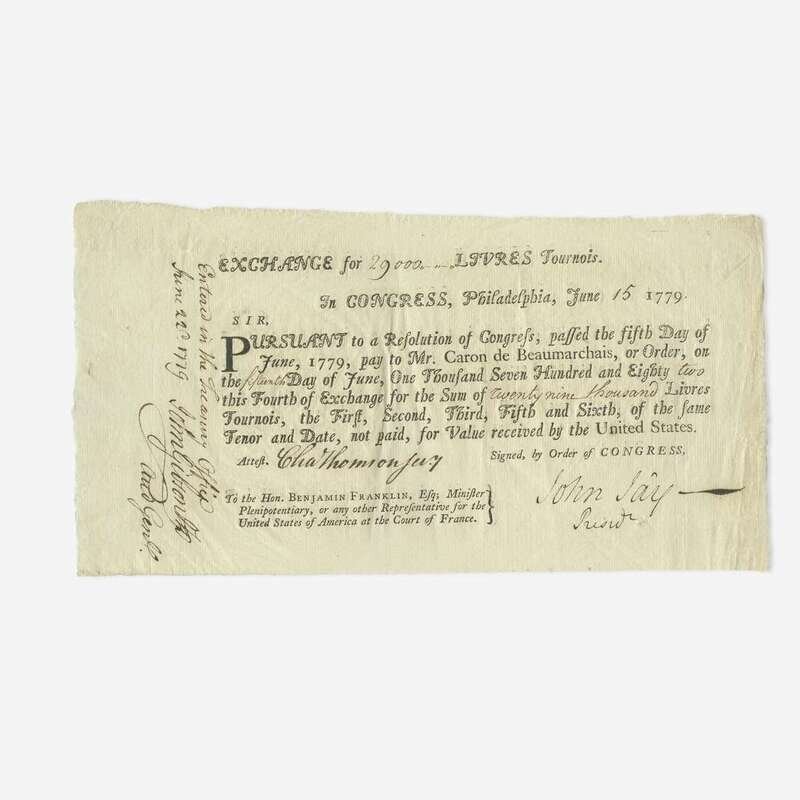 EXCHANGE for 29000 LIVRES Tournois.
In CONGRESS, Philadelphia, June 15 1779.
SIR,
PURSUANT to a Resolution of Congreſs, paſſed the fifth Day of
June, 1779, pay to Mr. Caron de Beaumarchais, or Order, on
the fifteenth Day of June, One Thouſand Seven Hundred and Eighty two
this Fourth of Exchange for the Sum of twenty nine thousand Livres
Tournois, the Firſt, Second, Third, Fifth and Sixth, of the ſame
Tenor and Date, not paid, for Value received by the United States.
Atteſt. Cha Thomson secy
Signed, by Order of CONGRESS,
John Jay
Presidt
To the Hon. BENJAMIN FRANKLIN, Eſq; Miniſter
Plenipotentiary, or any other Repreſentative for the
United States of America at the Court of France.
Entered in the Treasury Office
June 22d. 1779 John Gibson
Aud Genl.